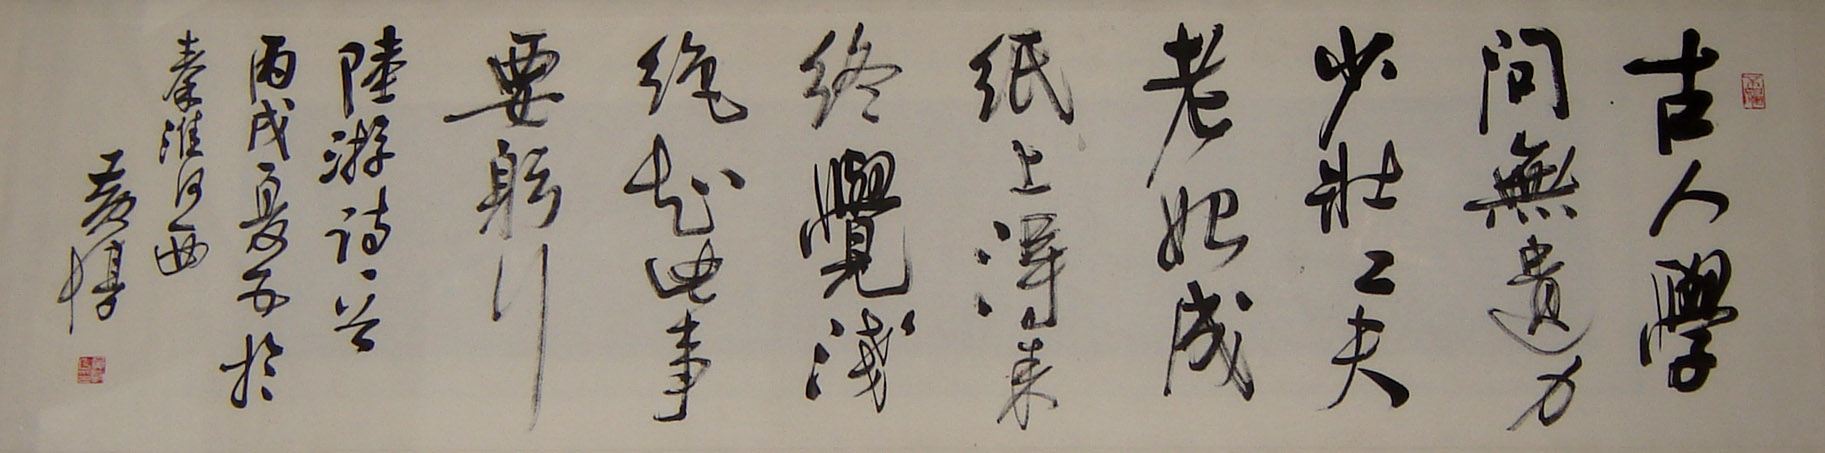 古人學
問無遺力
少壯工夫
老始成
紙上得来
終覺淺
絕知此事
要躬行
陸游詩一首
丙戌夏书於
秦淮河西
黄惇